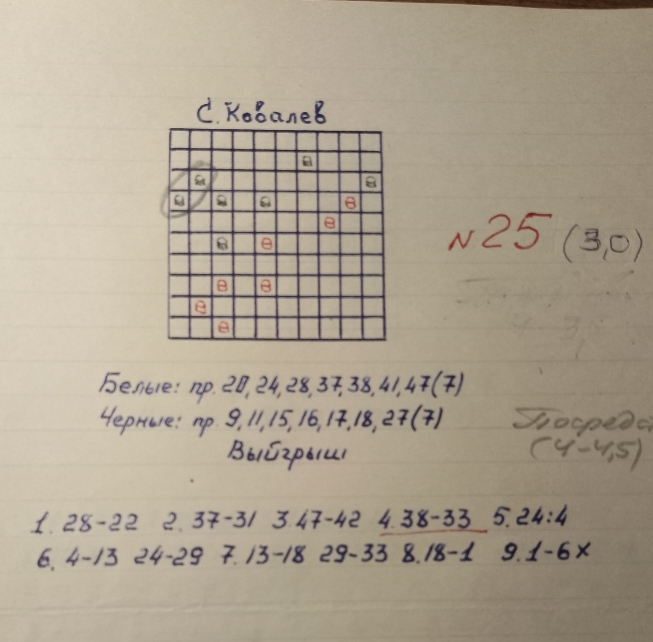 С. Ковалев
N 25 (3,0)
Белые: пр. 20, 24, 28, 37, 38, 41, 47 (7)
Черные: пр. 9, 11, 15, 16, 17, 18, 27 (7)
(4-4,5)
Выйгрыш
1. 28-22 2. 37-31 3. 47-42 4. 38-33 5. 24:4
6. 4-13 24-29 7. 13-18 29-33 8. 18-1 9. 1-6 x